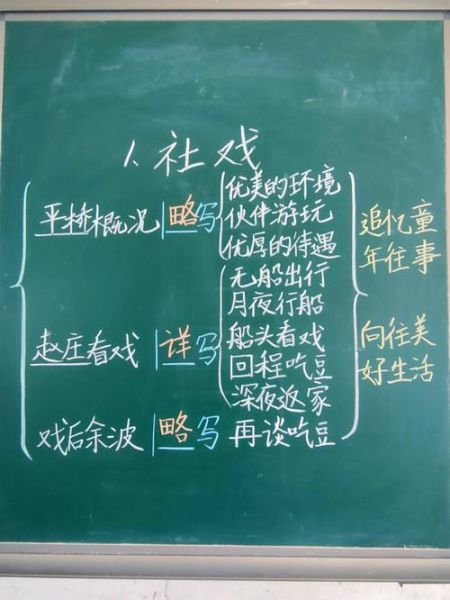 1、社戏
平桥概况 略写
优美的环境
伙伴游玩
优厚的待遇
赵庄看戏 详写
无船出行
月夜行船
船头看戏
回程吃豆
深夜返家
戏后余波 略写 再谈吃豆
追忆童
年往事
向往美
好生活